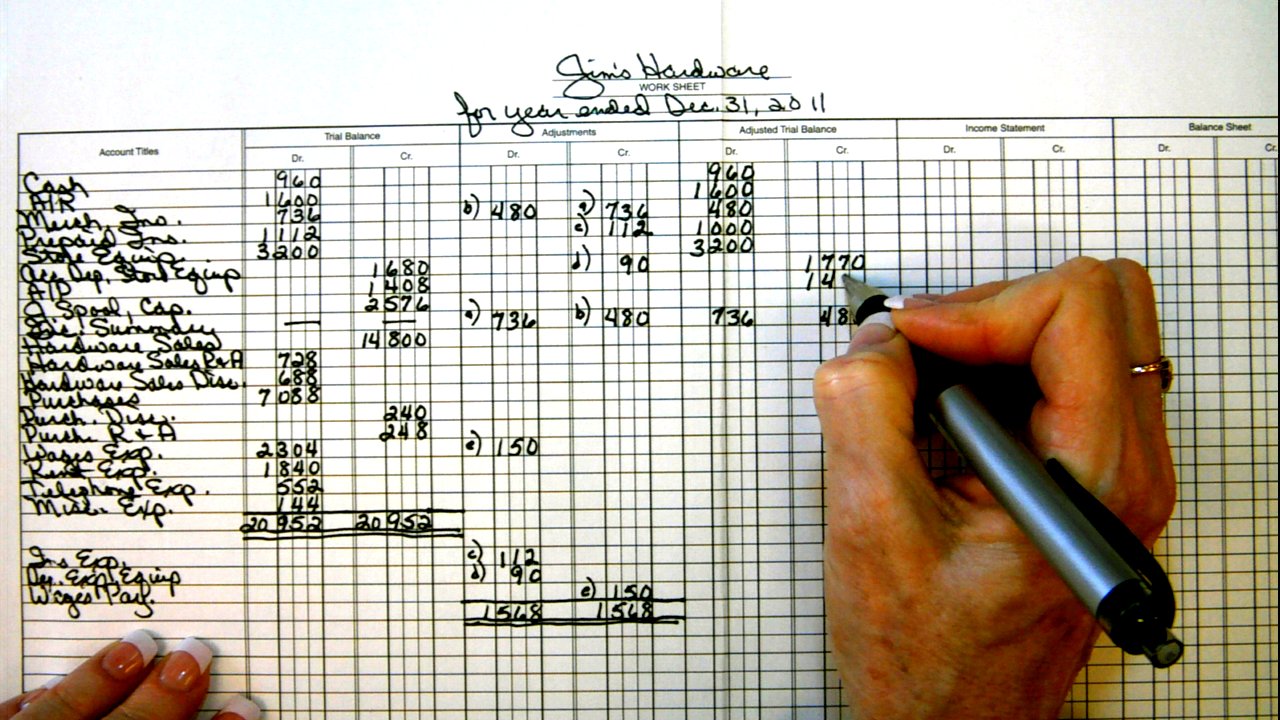 Jim's Hardware
WORK SHEET
for year ended Dec. 31, 2011
Account Titles Trial Balance Adjustments Adjusted Trial Balance Income Statement Balance Sheet
Dr. Cr. Dr. Cr. Dr. Cr. Dr. Cr. Dr. Cr.
Cash 960 960
A/R 1600 1600
Merch. Ins. 736 b) 480 a) 736 480
Prepaid Ins. 1112 c) 112 1000
Store Equip. 3200 3200
Acc. Dep. Store Equip 1680 d) 90 1770
A/P 1408 14
J. Spool, Cap. 2576
Inc. Summary — — a) 736 b) 480 736 48
Hardware Sales 14800
Hardware Sales R&A 728
Hardware Sales Disc. 688
Purchases 7088
Purch. Disc. 240
Purch. R & A 248
Wages Exp. 2304 e) 150
Rent Exp. 1840
Telephone Exp. 552
Misc. Exp. 144
20952 20952
Ins Exp. c) 112
Dep. Exp. Equip d) 90
Wages Pay. e) 150
1568 1568